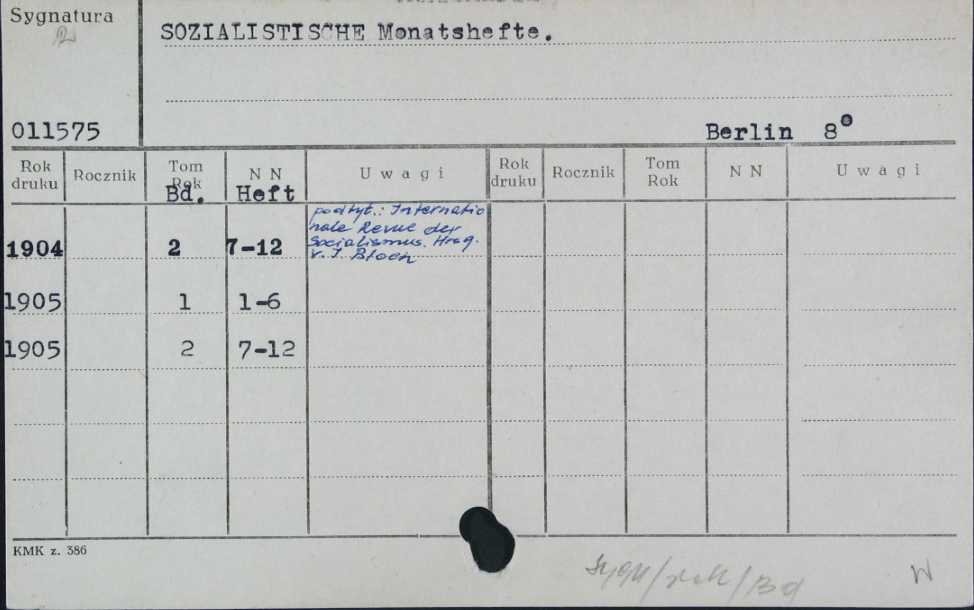 Sygnatura
SOZIALISTISCHE Monatshefte.
011575
Berlin 8°
Rok druku Rocznik Tom Rok N N Uwagi Rok druku Rocznik Tom Rok N N Uwagi
Bd. Heft
podtyt.: Internatio
nale Revue der
Socialismus. Hrsg.
v. J. Bloch
1904 2 7-12
1905 1 1-6
1905 2 7-12
KMK z. 386
Sygn/rok/Bd
W